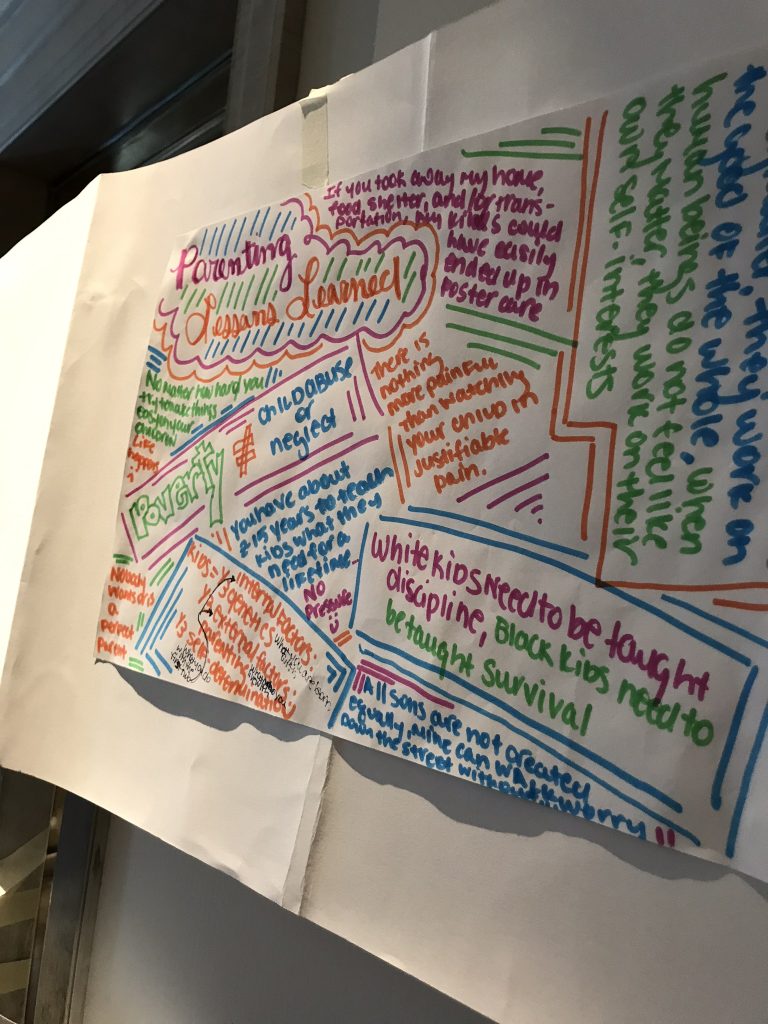 Parenting
Lessons Learned
If you took away my home,
food, shelter, and/or trans-
portation, my kids could
have easily
ended up in
foster care
they work on
the good of the whole,
human beings do not feel like
they matter, they work on their
own self-interests
when
No matter how hard you
try to make things
easy on your
children
Life
happens
Poverty
≠
child abuse
or
neglect
There is
nothing
more painful
than watching
your child in
justifiable
pain.
you have about
15 years to teach
kids what they
need for a
lifetime
No
Pressure
Nobody
wants
a
perfect
parent
Kids =
internal factors:
genetics
external factors:
parenting
is self
determination
White kids need to be taught
discipline, Black kids need to
be taught survival
All sons are not created
equally, mine can walk
down the street without worry